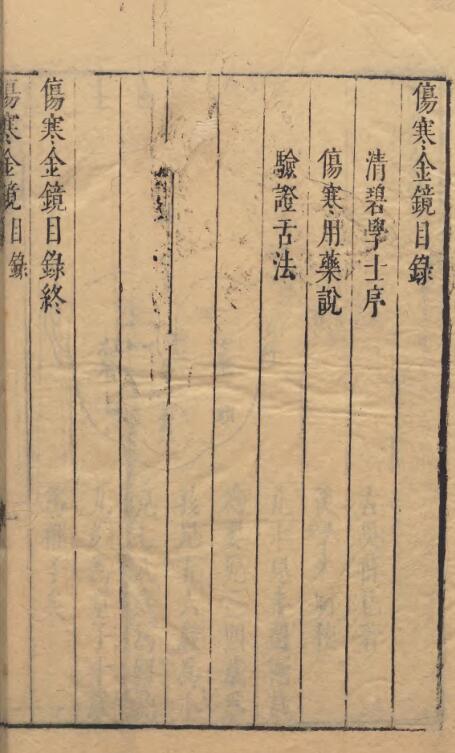 傷寒金鏡目錄
清碧學士序
傷寒用藥說
驗證舌法
傷寒金鏡目錄終
傷寒金鏡目錄